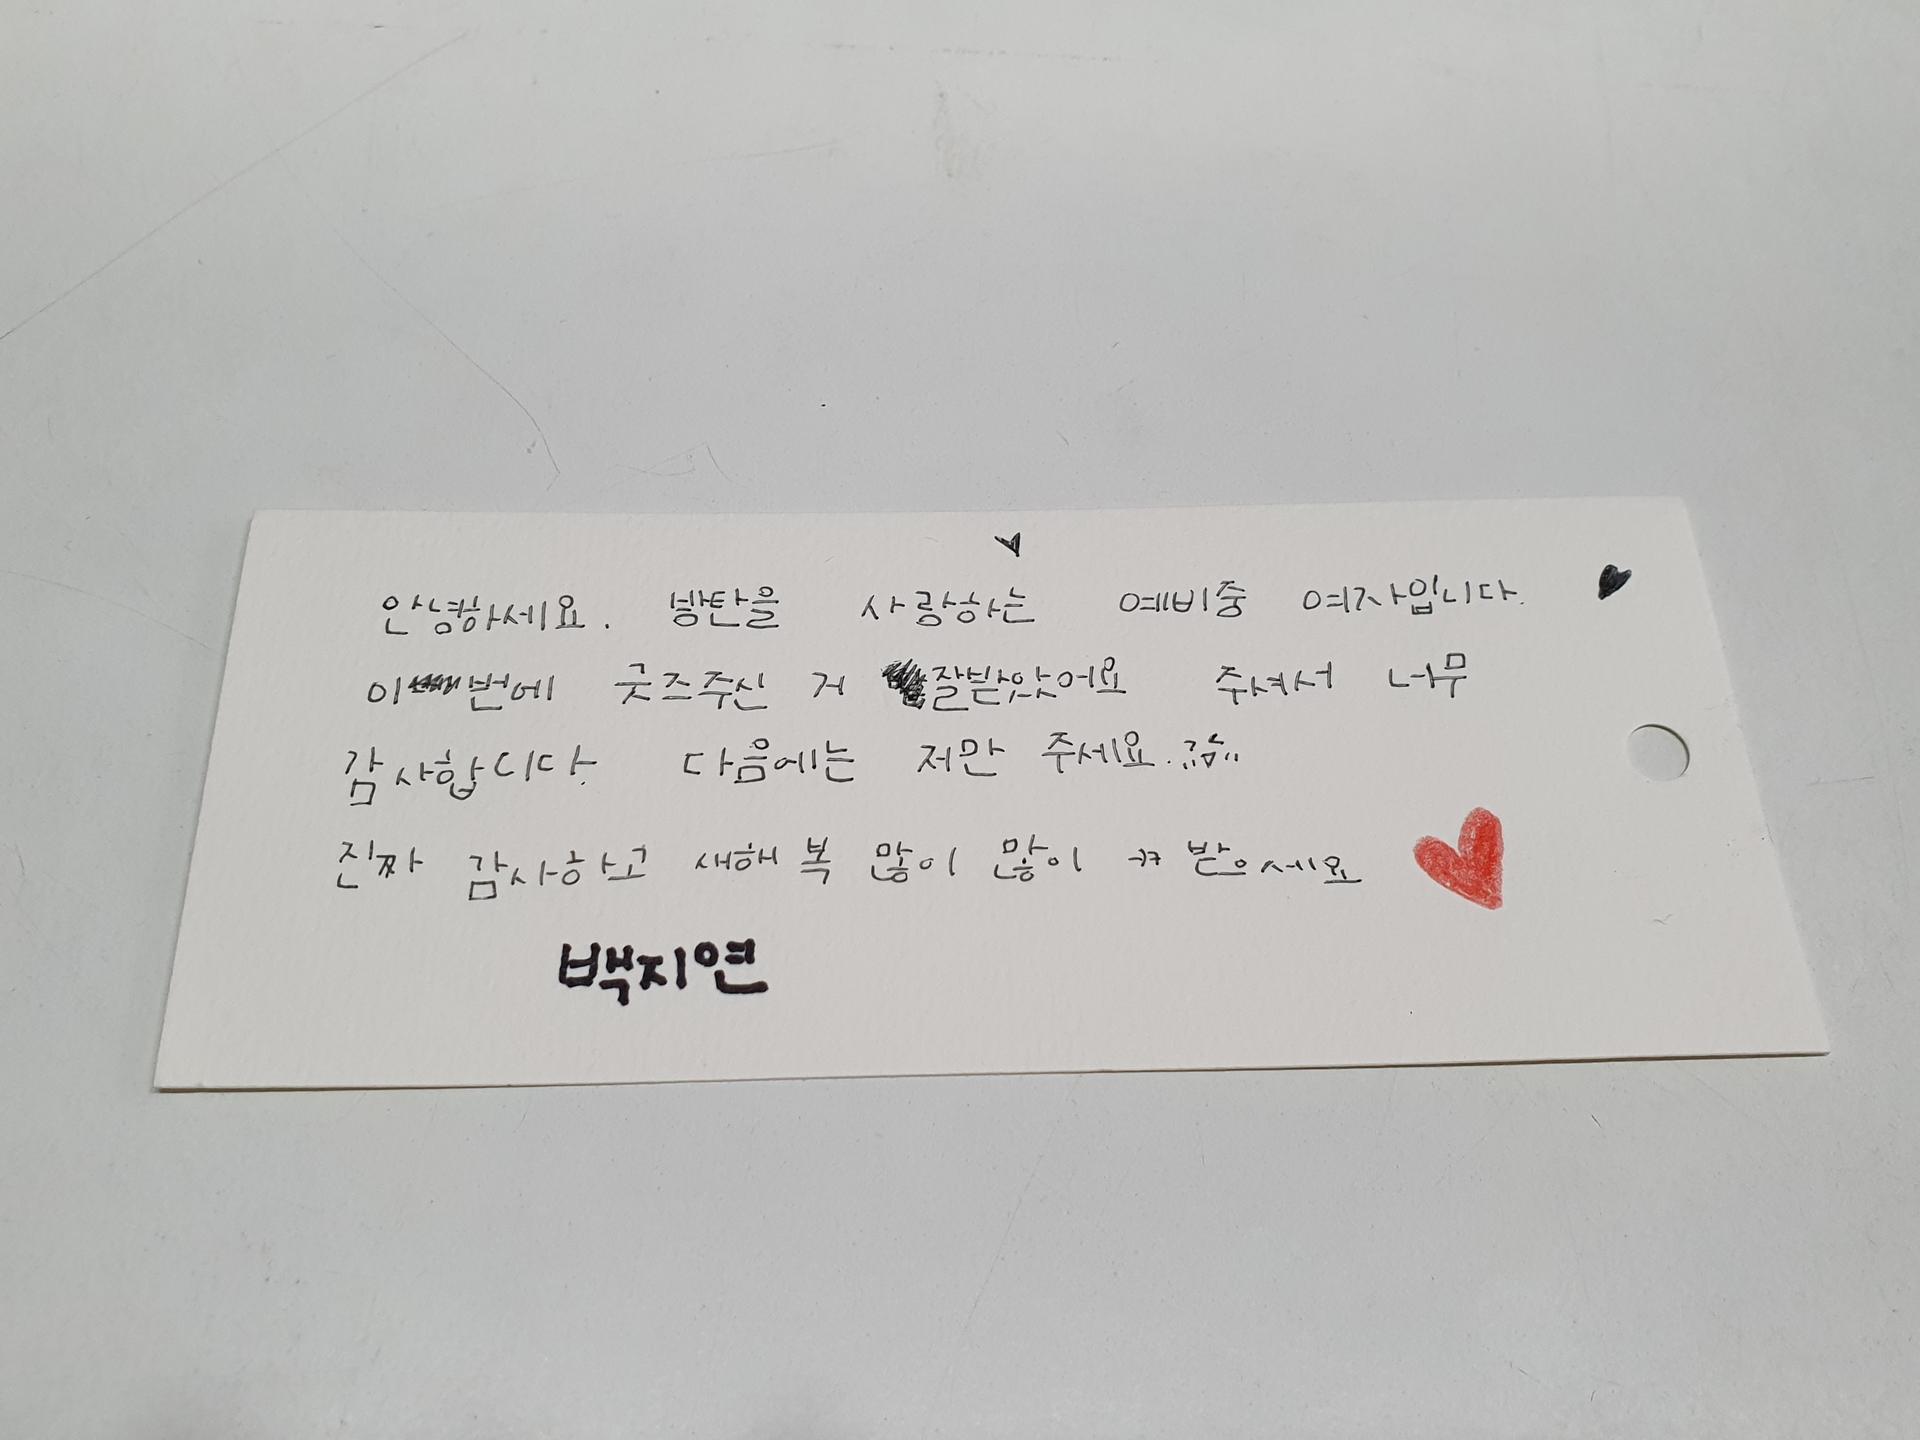 안녕하세요. 방탄을 사랑하는 예비중 여자입니다.
이번에 굿즈주신 거 잘받았어요 주셔서 너무
감사합니다. 다음에는 저만 주세요.
진짜 감사하고 새해 복 많이 많이 ㅋㅋ 받으세요
백지연